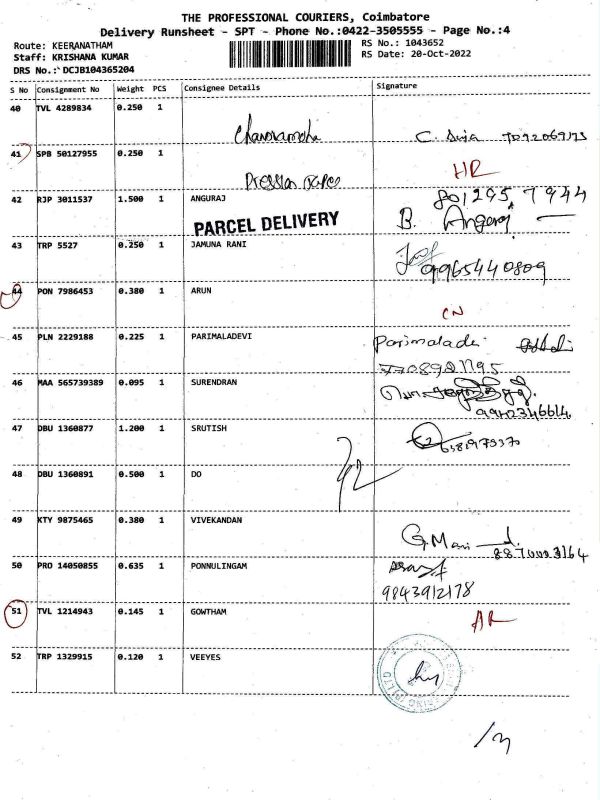 THE PROFESSIONAL COURIERS, Coimbatore
Delivery Runsheet - SPT - Phone No.:0422-3505555 - Page No.:4
Route: KEERANATHAM RS No.: 1043652
Staff: KRISHANA KUMAR RS Date: 20-Oct-2022
DRS No.: DCJB104365204
S No Consignment No Weight PCS Consignee Details Signature
40 TVL 4289834 0.250 1
41 SPB 50127955 0.250 1
HR
42 RJP 3011537 1.500 1 ANGURAJ
PARCEL DELIVERY
43 TRP 5527 0.250 1 JAMUNA RANI
9965440809
44 PON 7986453 0.380 1 ARUN
CN
45 PLN 2229188 0.225 1 PARIMALADEVI
46 MAA 565739389 0.095 1 SURENDRAN
47 DBU 1360877 1.200 1 SRUTISH
48 DBU 1360891 0.500 1 DO
49 KTY 9875465 0.380 1 VIVEKANDAN
G.Mani
50 PRO 14050855 0.635 1 PONNULINGAM
9843912178
51 TVL 1214943 0.145 1 GOWTHAM
AR
52 TRP 1329915 0.120 1 VEEYES